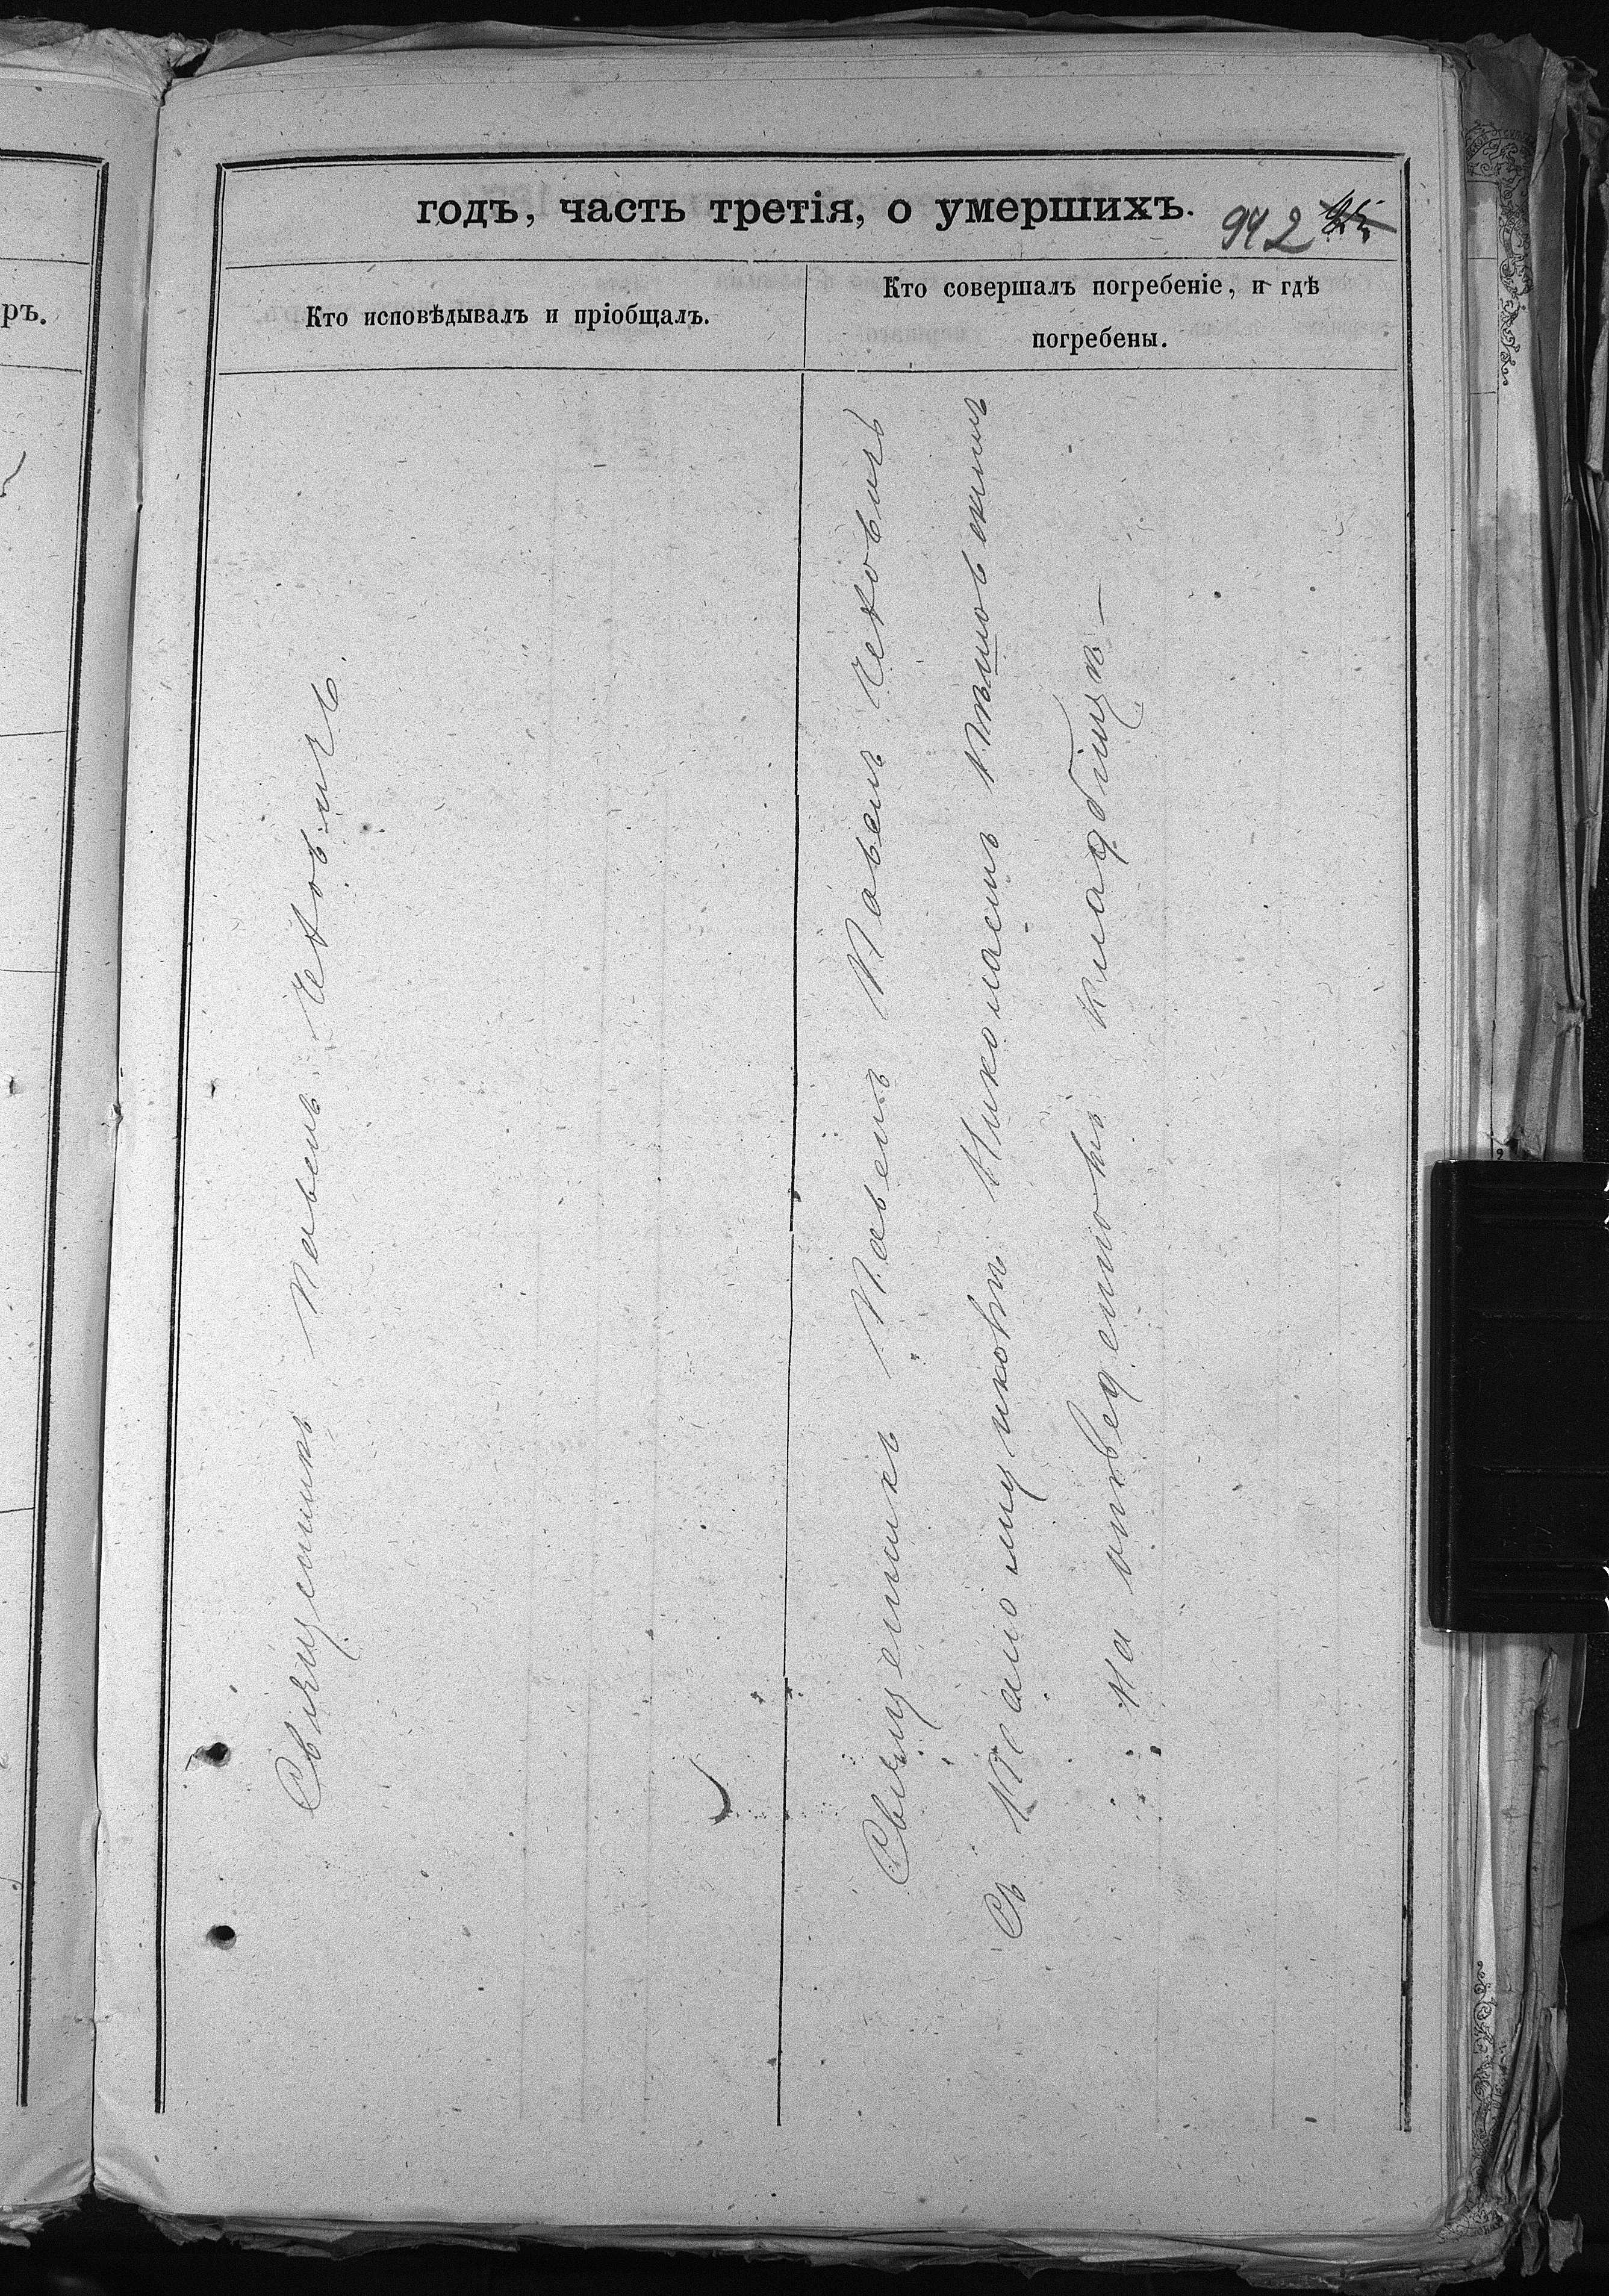 годъ, часть третія, о умершихъ.
942
Кто исповѣдывалъ и пріобщалъ.
Кто совершалъ погребеніе, и гдѣ
погребены.
ръ.
Священникъ Павелъ Чеховичъ
Священникъ Павелъ Павелъ Чеховичъ
Съ Псаломщикомъ Николаемъ
На отведенномъ кладбищѣ —